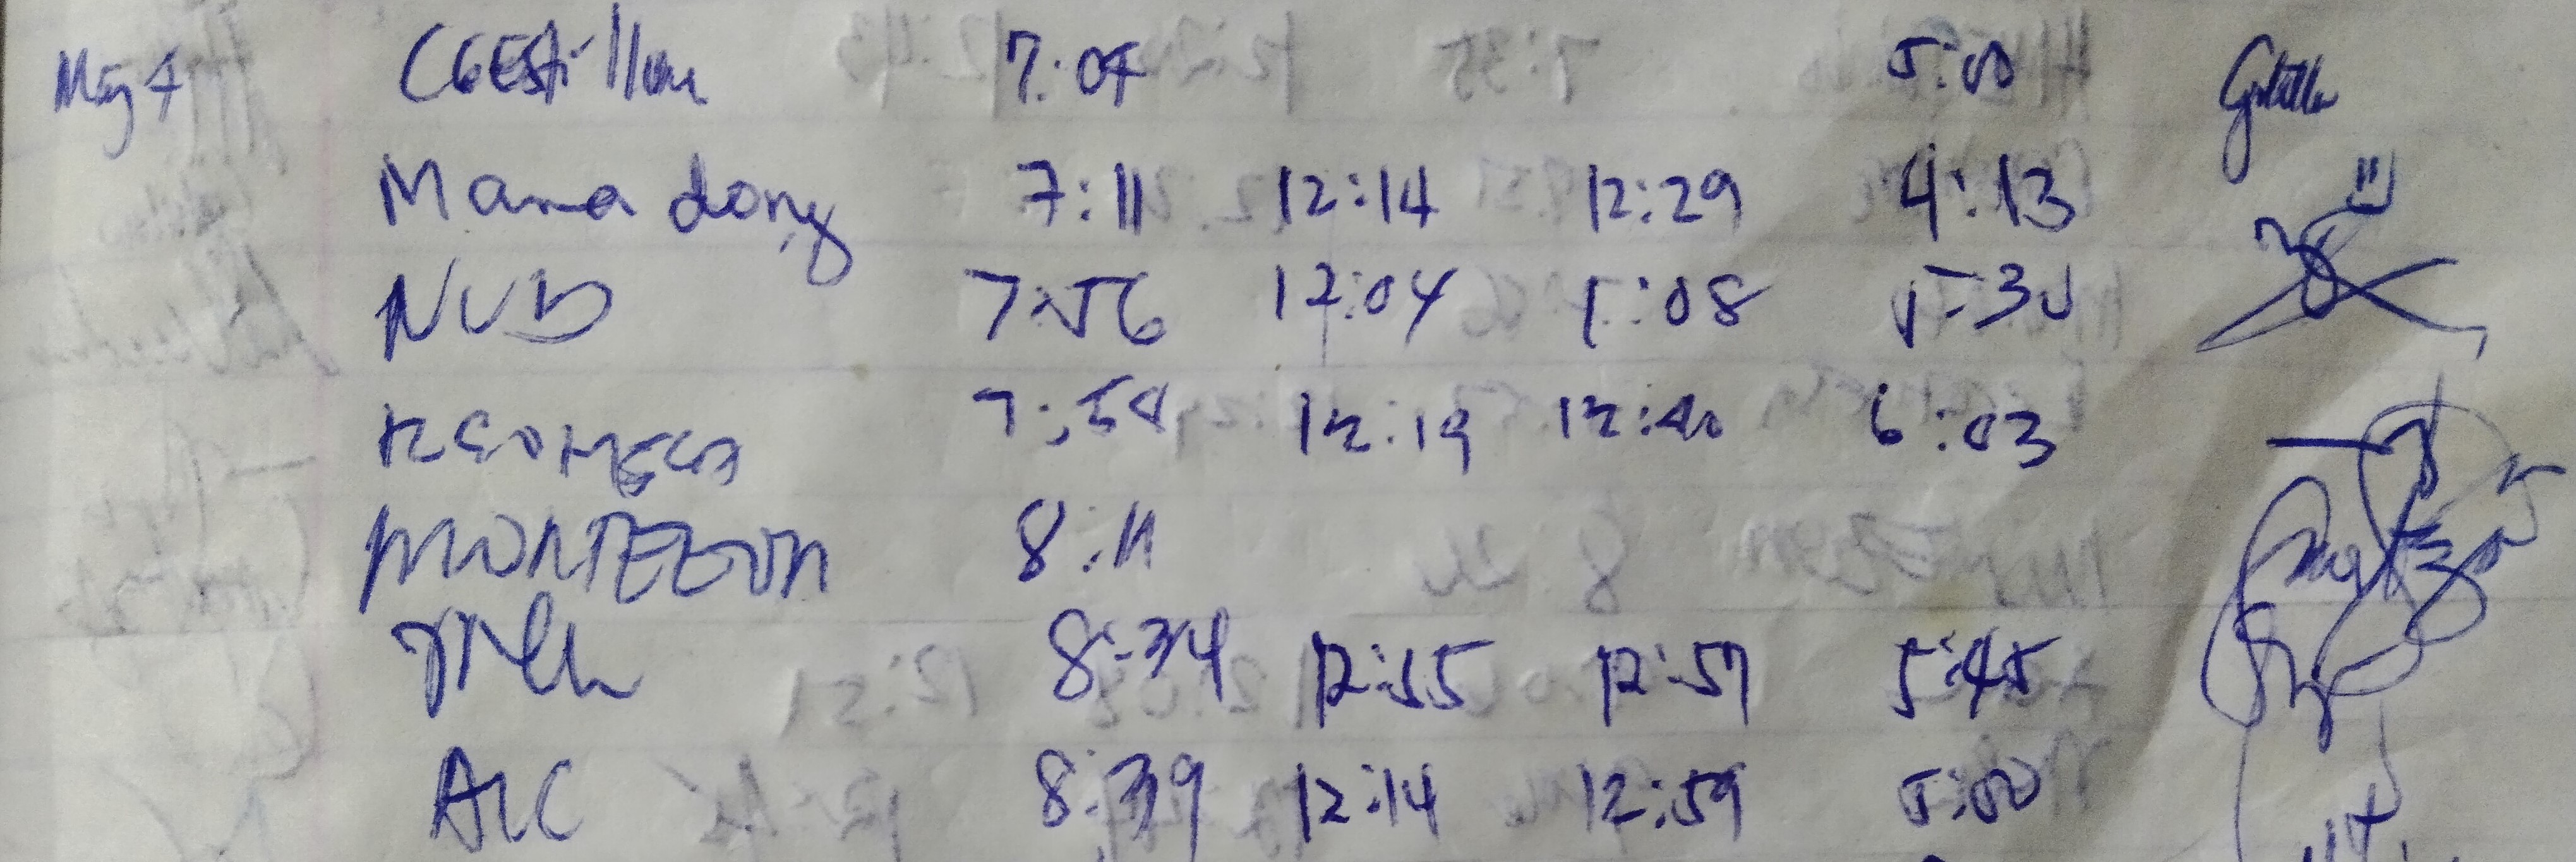 May 4 CGEstillore 7:04 5:00
Mana dong 7:11 12:14 12:29 4:13
NUD 7:56 12:04 1:08 5:30
7:54 12:19 12:40 6:03
MONTEZON 8:11
8:34 12:55 12:57 5:45
AIC 8:39 12:14 12:59 5:00